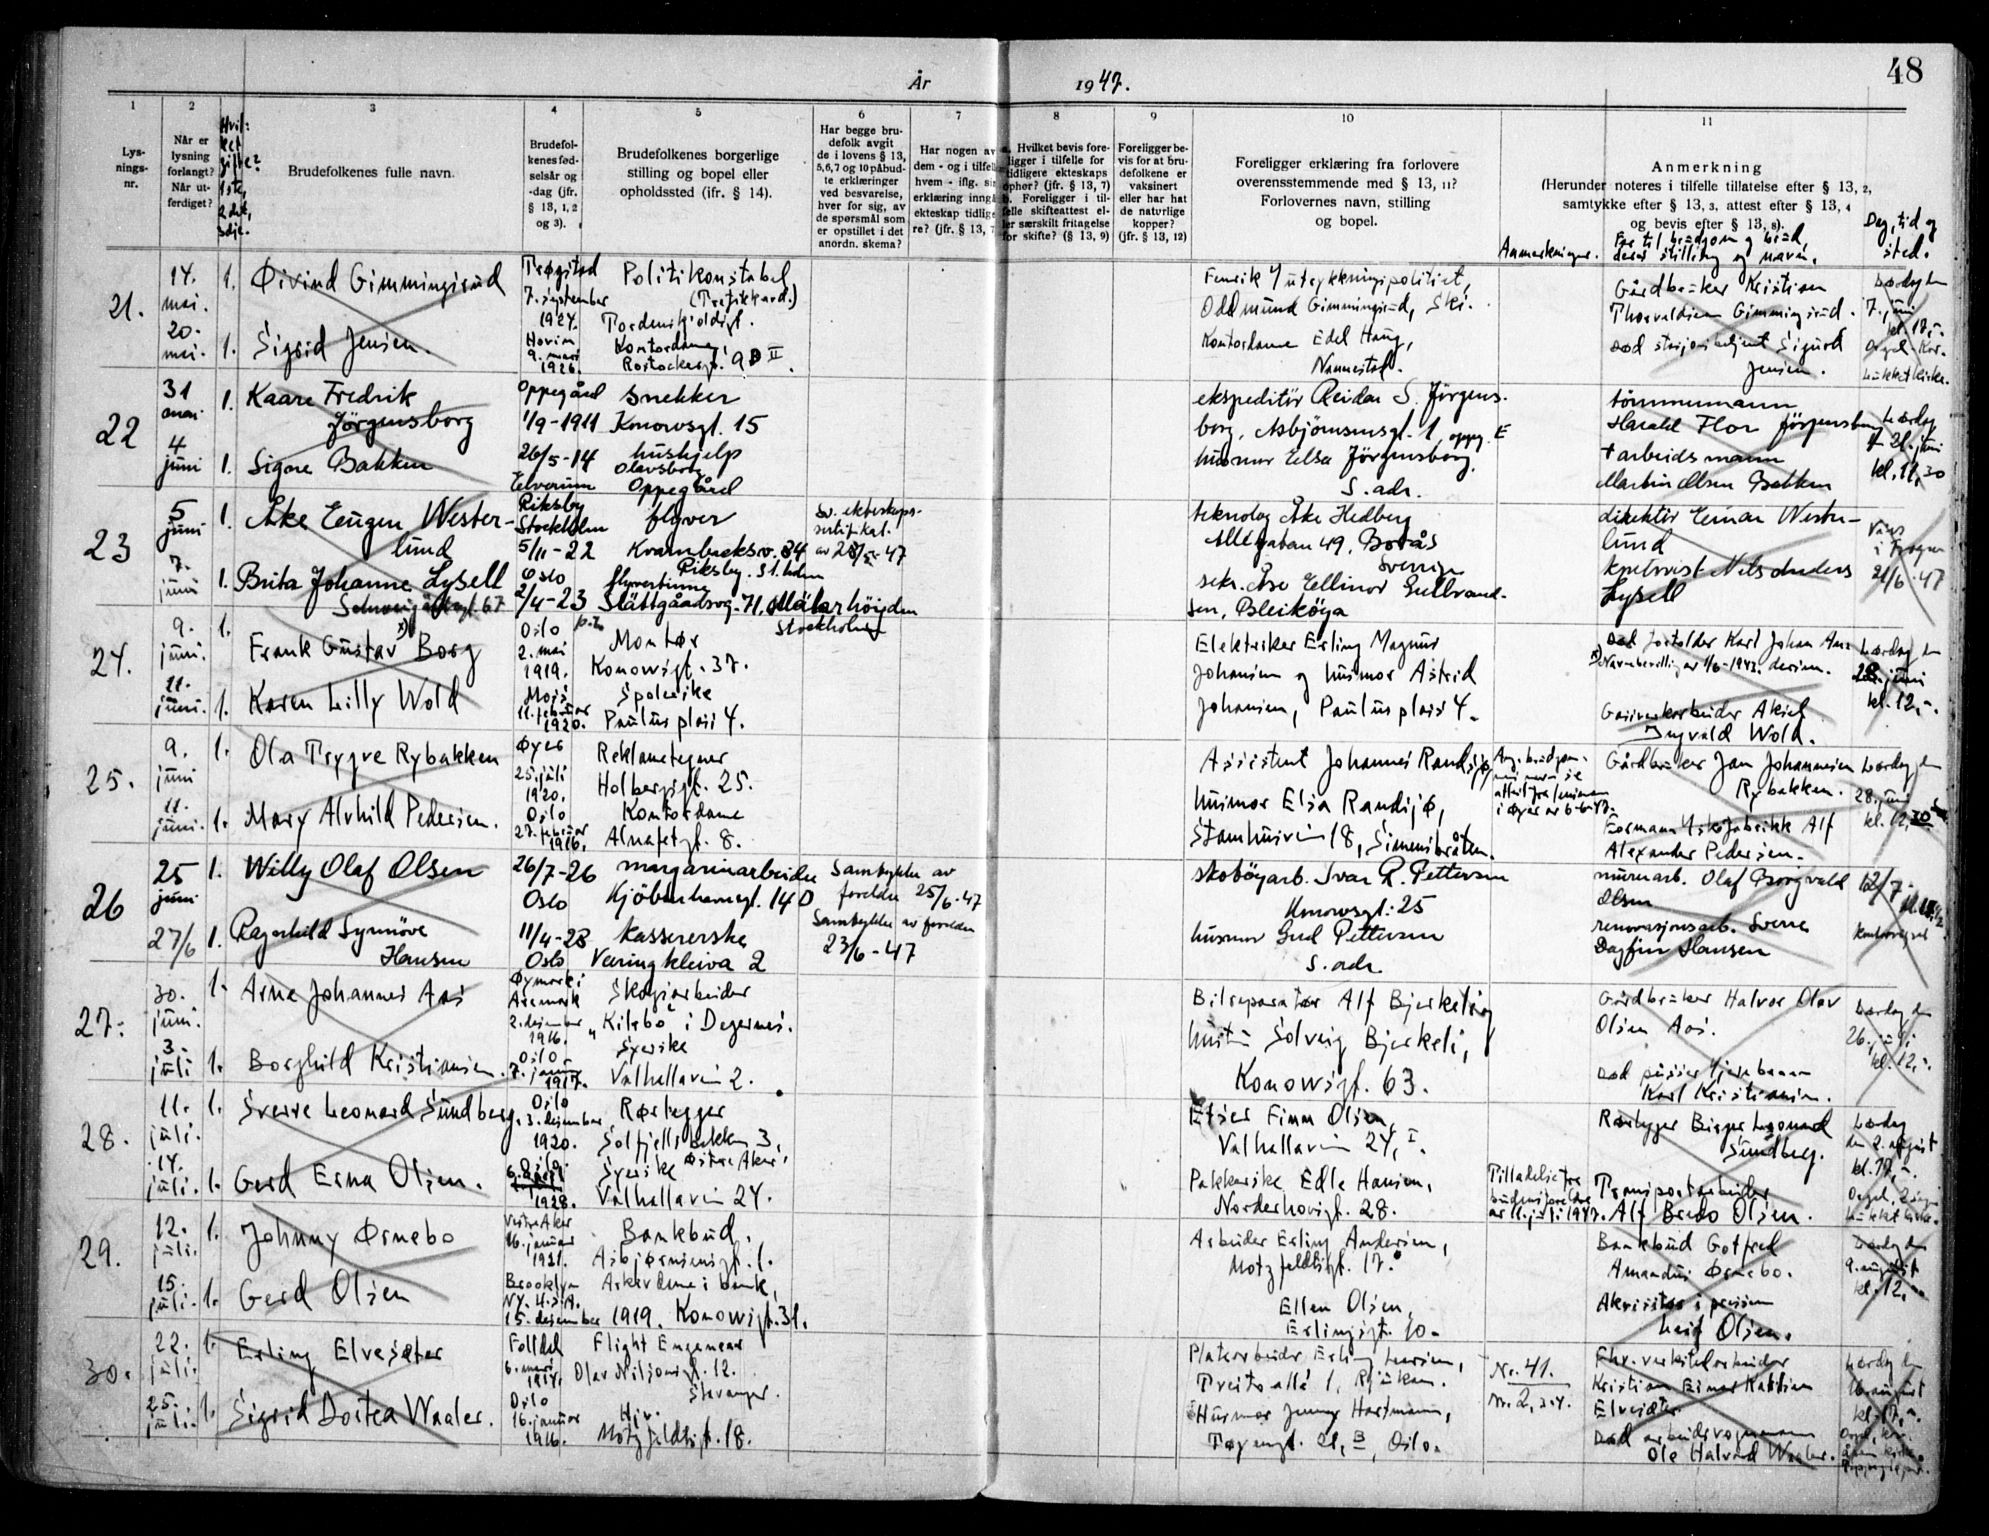 48
År 1947.
1 2 3 4 5 6 7 8 9 10 11
Lys-
nings-
nr.
Når er
lysning
forlangt?
Når ut-
ferdiget?
Brudefolkenes fulle navn.
Brudefol-
kenes fød-
selsår og
-dag (jfr.
§ 13, 1, 2
og 3).
Brudefolkenes borgerlige
stilling og bopel eller
opholdssted (jfr. § 14).
Har begge bru-
defolk avgit
de i lovens § 13,
5,6,7 og 10 påbud-
te erklæringer
ved besvarelse,
hver for sig, av
de spørsmål som
er opstillet i det
anordn. skema?
Har nogen av
dem - og i tilfelle
hvem - iflg. sin
erklæring inngå
ekteskap tidlige
re? (jfr. § 13, 7
a. Hvilket bevis fore-
ligger i tilfelle for
tidligere ekteskaps
ophør? (jfr. § 13, 7)
b. Foreligger i til-
felle skifteattest el-
ler særskilt fritagelse
for skifte? (§ 13, 9)
Foreligger be-
vis for at bru-
defolkene er
vaksinert
eller har hat
de naturlige
kopper?
(jfr. § 13, 12)
Foreligger erklæring fra forlovere
overensstemmende med § 13, 11?
Forlovernes navn, stilling
og bopel.
Anmerkning
(Herunder noteres i tilfelle tillatelse efter § 13, 2,
samtykke efter § 13, 3, attest efter § 13, 4
og bevis efter § 13, 8).
Anmerkninger.
Far til brudgom og brud,
deres stilling og navn.
Dag, tid og
sted.
21.
14.
mai.
20.
mai.
1. Øivind Gimmingsrud
1. Sigrid Jensen.
Trøgstad
7. september
1924.
Hovin
9. mars
1926.
Politikonstabel
(Trafikkavd.)
Tordenskjoldsgt.
Kontordame,
Rostockergt. 9 II.
Fenrik i utrykkningspolitiet,
Oddmund Gimmingsrud, Ski.
Kontordame Edel Haug,
Nannestad.
Gårdbruker Kristian
Thorvaldsen Gimmingsrud.
Død stasjonsbetjent Sigurd
Jensen.
Lørdag den
7. juni
22
31
mai
4
juni
1. Kaare Fredrik
Jörgensborg
1. Signe Bakken
Oppegård
1/9-1911
26/5-14
Elverum
snekker
Konowsgt. 15
hushjelp
Olavsborg
Oppegård
ekspeditör Reidar S. Jörgens-
borg, Asbjörnsensgt. 1, oppg. E
husmor Elsa Jörgensborg.
S. adr.
tömmermann
Harald Flor Jörgensborg
+ arbeidsmann
Martin Olsen Bakken
Lørdag
21. juni
kl. 11,30
23
5
juni
7.
juni
1. Åke Eugen Wester-
lund
1. Brita Johanne Lysell
Schweigårdsgt. 67
Riksby
Stockholm
5/11-22
Oslo
2/4-23
flyver
Kvarnbacksv. 84
Riksby. St.holm
flyvertinne
Slättgårdsvg. 71, Mälarhöjden
Stockholm
Sv. ekteskaps-
sertifikat.
av 28/5-47
teknolog Åke Hedberg
Allégatan 49, Borås
Sverige
sekr. Åse Ellinor Gulbrand-
sen, Bleiköya
direktör Einar Wester-
lund
Nils Anders
Lysell
21/6-47
24.
9.
juni.
11.
juni.
1. Frank Gustav x) Borg
1. Karen Lilly Wold
Oslo
2. mai
1919.
Moss
11. februar
1920.
Montør
Konowsgt. 37.
Spolerske
Paulus plass 4.
Elektriker Erling Magnus
Johansen og husmor Astrid
Johansen, Paulus plass 4.
Død Karl Johan
x) Navnebevilling av 1/6-1943.
Gassverksarbeider Aksel
Ingvald Wold.
Lørdag den
28. juni
kl. 12,-.
25.
9.
juni
11.
juni.
1. Ola Trygve Rybakken
1. Mary Alvhild Pedersen.
Øyer
25. juli
1920.
Oslo
27. februar
1916.
Reklametegner
Holbergsgt. 25.
Kontordame
Alnafetgt. 8.
Assistent Johannes Randsjø,
husmor Elsa Randsjø,
Stamhusvn 18, Simensbråten.
Ang. brudgom-
mens navn se
attest fra
i Øyer av 6-6-47.
Gårdbruker Jan Johannesen
Rybakken.
Formann i skofabrikk Alf
Alexander Pedersen.
Lørdag den
28. juni
kl. 12,30
26
25
juni
27/6
1. Willy Olaf Olsen
1. Ragnhild Synnöve
Hansen
26/7-26
Oslo
11/4-28
Oslo
margarinarbeider
Kjöbenhavnsgt. 14 D
kassererske
Væringkleiva 2
Samtykke av
foreldre 25/6-47
Samtykke av foreldre
23/6-47
skotöyarb. Ivar R. Pettersen
Konowsgt. 25
husmor Gud Pettersen
S. adr.
murerarb. Olaf Borgvald
Olsen
renovasjonsarb. Sverre
Dagfinn Hansen
12/7
27.
30.
juni.
3.
juli
1. Arne Johannes Aas
1. Borghild Kristiansen.
Øymark i
Aremark
2. desember
1916.
Oslo
7. januar
1917.
Skogsarbeider
"Kilebo" i Degernes.
Syerske
Valhallavn 2.
Bilreparatør Alf Bjerkeli og
hustru Solveig Bjerkeli,
Konowsgt. 63.
Gårdbruker Halvor Olav
Olsen Aas.
Død pusser
Karl Kristiansen.
Lørdag den
26. juli
kl. 12,-.
28.
11.
juli.
14.
juli.
1. Sverre Leonard Sundberg.
1. Gerd Erna Olsen.
Oslo
3. desember
1920.
Oslo.
1928.
Rørlegger
Solfjellsbakken 3,
Østre Aker.
Syerske
Valhallavn 24.
Etser Finn Olsen,
Valhallavn 24, I.
Pakkerske Edle Hansen,
Norderhovsgt. 28.
Tilladelse fra
brudens foreldre
av 11. juli 1947.
Rørlegger Birger Leonard
Sundberg.
Transportarbeider
Alf Bredo Olsen.
Lørdag
den 2. august
kl. 17,-.
29.
12.
juli.
15.
juli.
1. Johnny Ørnebo
1. Gerd Olsen
Vestre Aker
16. januar
1921.
Brooklyn
NY. U.S.A.
15. desember 1919.
Bankbud,
Asbjørnsensgt. 1.
Arkivdame i bank,
Konowsgt. 31.
Arbeider Erling Andersen,
Motzfeldtsgt. 17.
Ellen Olsen,
Erlingsgt. 10.
Bankbud Gotfred
Amandus Ørnebo.
Leif Olsen.
Lørdag den
9. august
kl. 12,-.
30.
22.
juli.
25.
juli.
1. Erling Elvesæter
1. Sigrid Dortea Waaler.
Folldal
6. mars
Oslo
16. januar
1916.
Flight Engeneer
Olav Nilsonsgt. 12.
Stavanger.
Motzfeldtsgt. 18.
Platearbeider Erling Larsen,
Treitos allé 1, Rjukan.
Husmor Jenny Hartmann,
Tøyengt. 21, B, Oslo.
Nr. 41.
Nr. 2, 3, 4.
Kristian Einar
Elvesæter.
Død arbeidsvognmann
Ole Halvord Waaler.
Lørdag den
16. august
kl. 17,-.